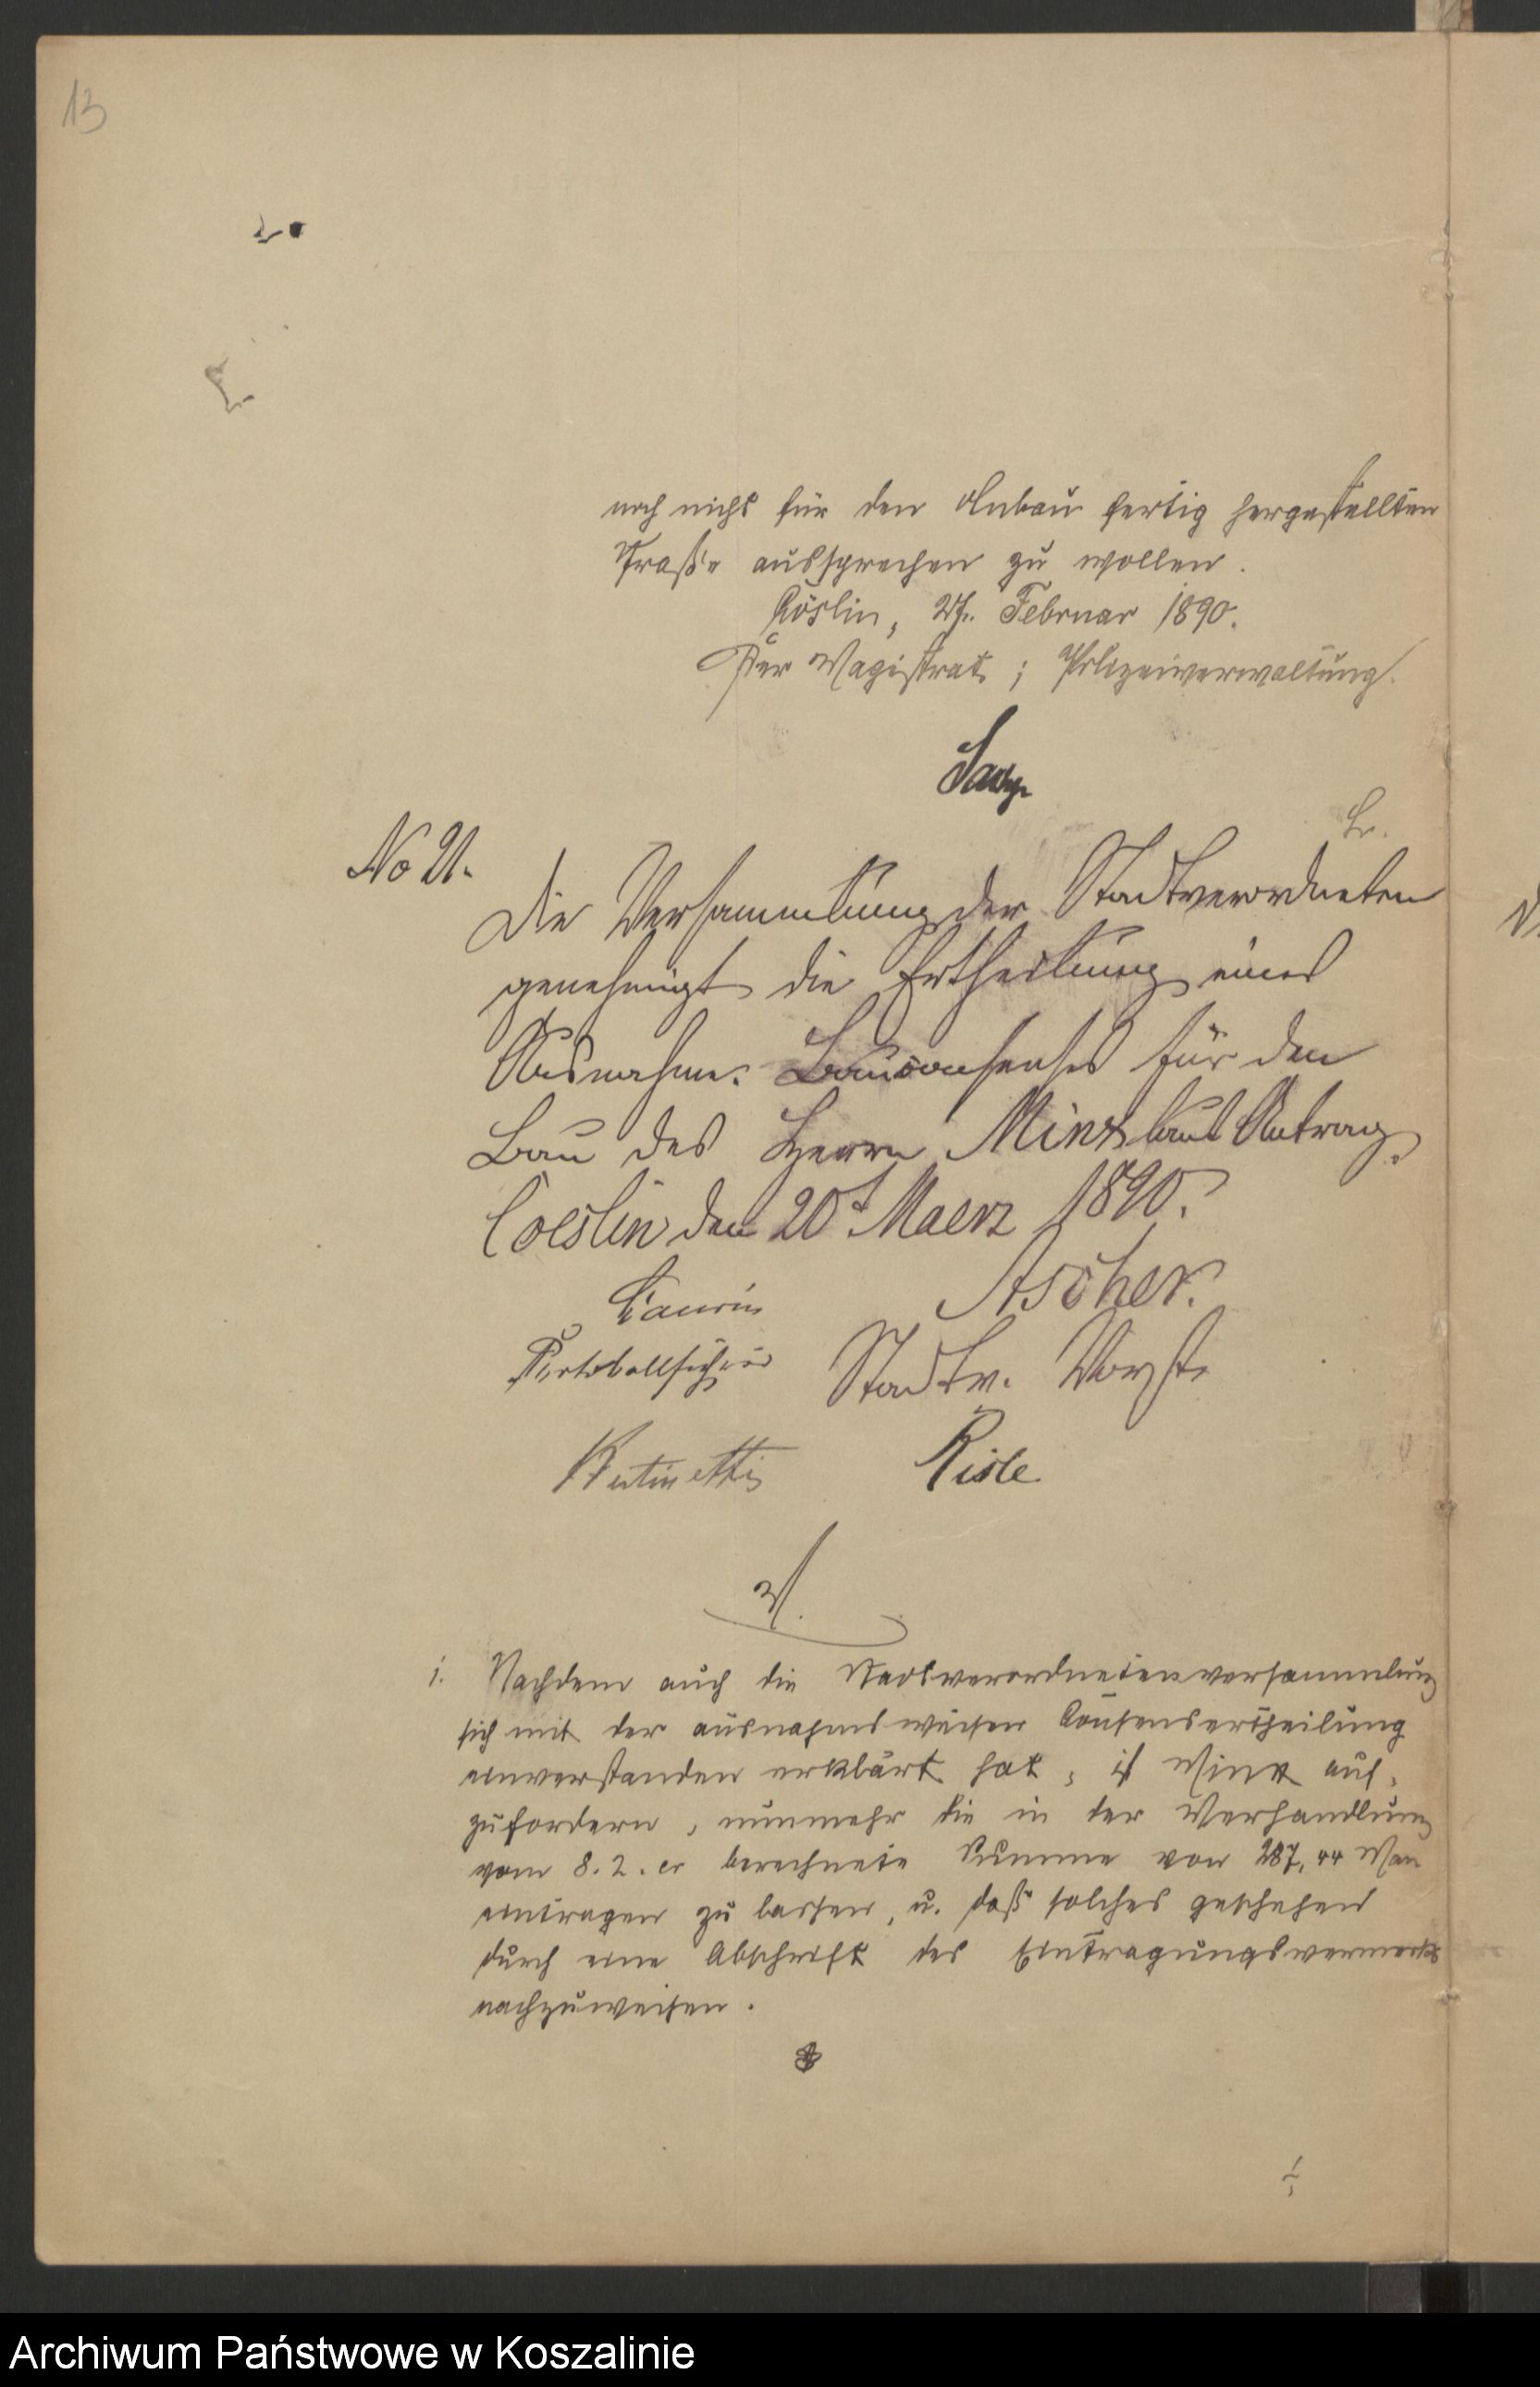 13
noch nicht für den Anbau fertig hergestellten
Straße aussprechen zu wollen.
Köslin, 27. Februar 1890.
Der Magistrat; Polizeiverwaltung.
No 21.
Die Versammlung der Stadtverordneten
genehmigt die Ertheilung eines
Ausnahme-Bauconsenses für den
Bau des Herrn Minx laut Antrag.
Coeslin den 20t Maerz 1890.
Ascher.
Protokollführer Stadtv. Vorst.
Risle
V.
1. Nachdem auch die Stadtverordnetenversammlung
sich mit der ausnahmsweisen Consensertheilung
einverstanden erklärt hat, ist Minx auf-
zufordern, nunmehr die in der Verhandlung
vom 8.2. cr berechnete Summe von 287,44 Mark
eintragen zu lassen, u. daß solches geschehen
durch eine Abschrift des Eintragungsvermerks
nachzuweisen.
Archiwum Państwowe w Koszalinie